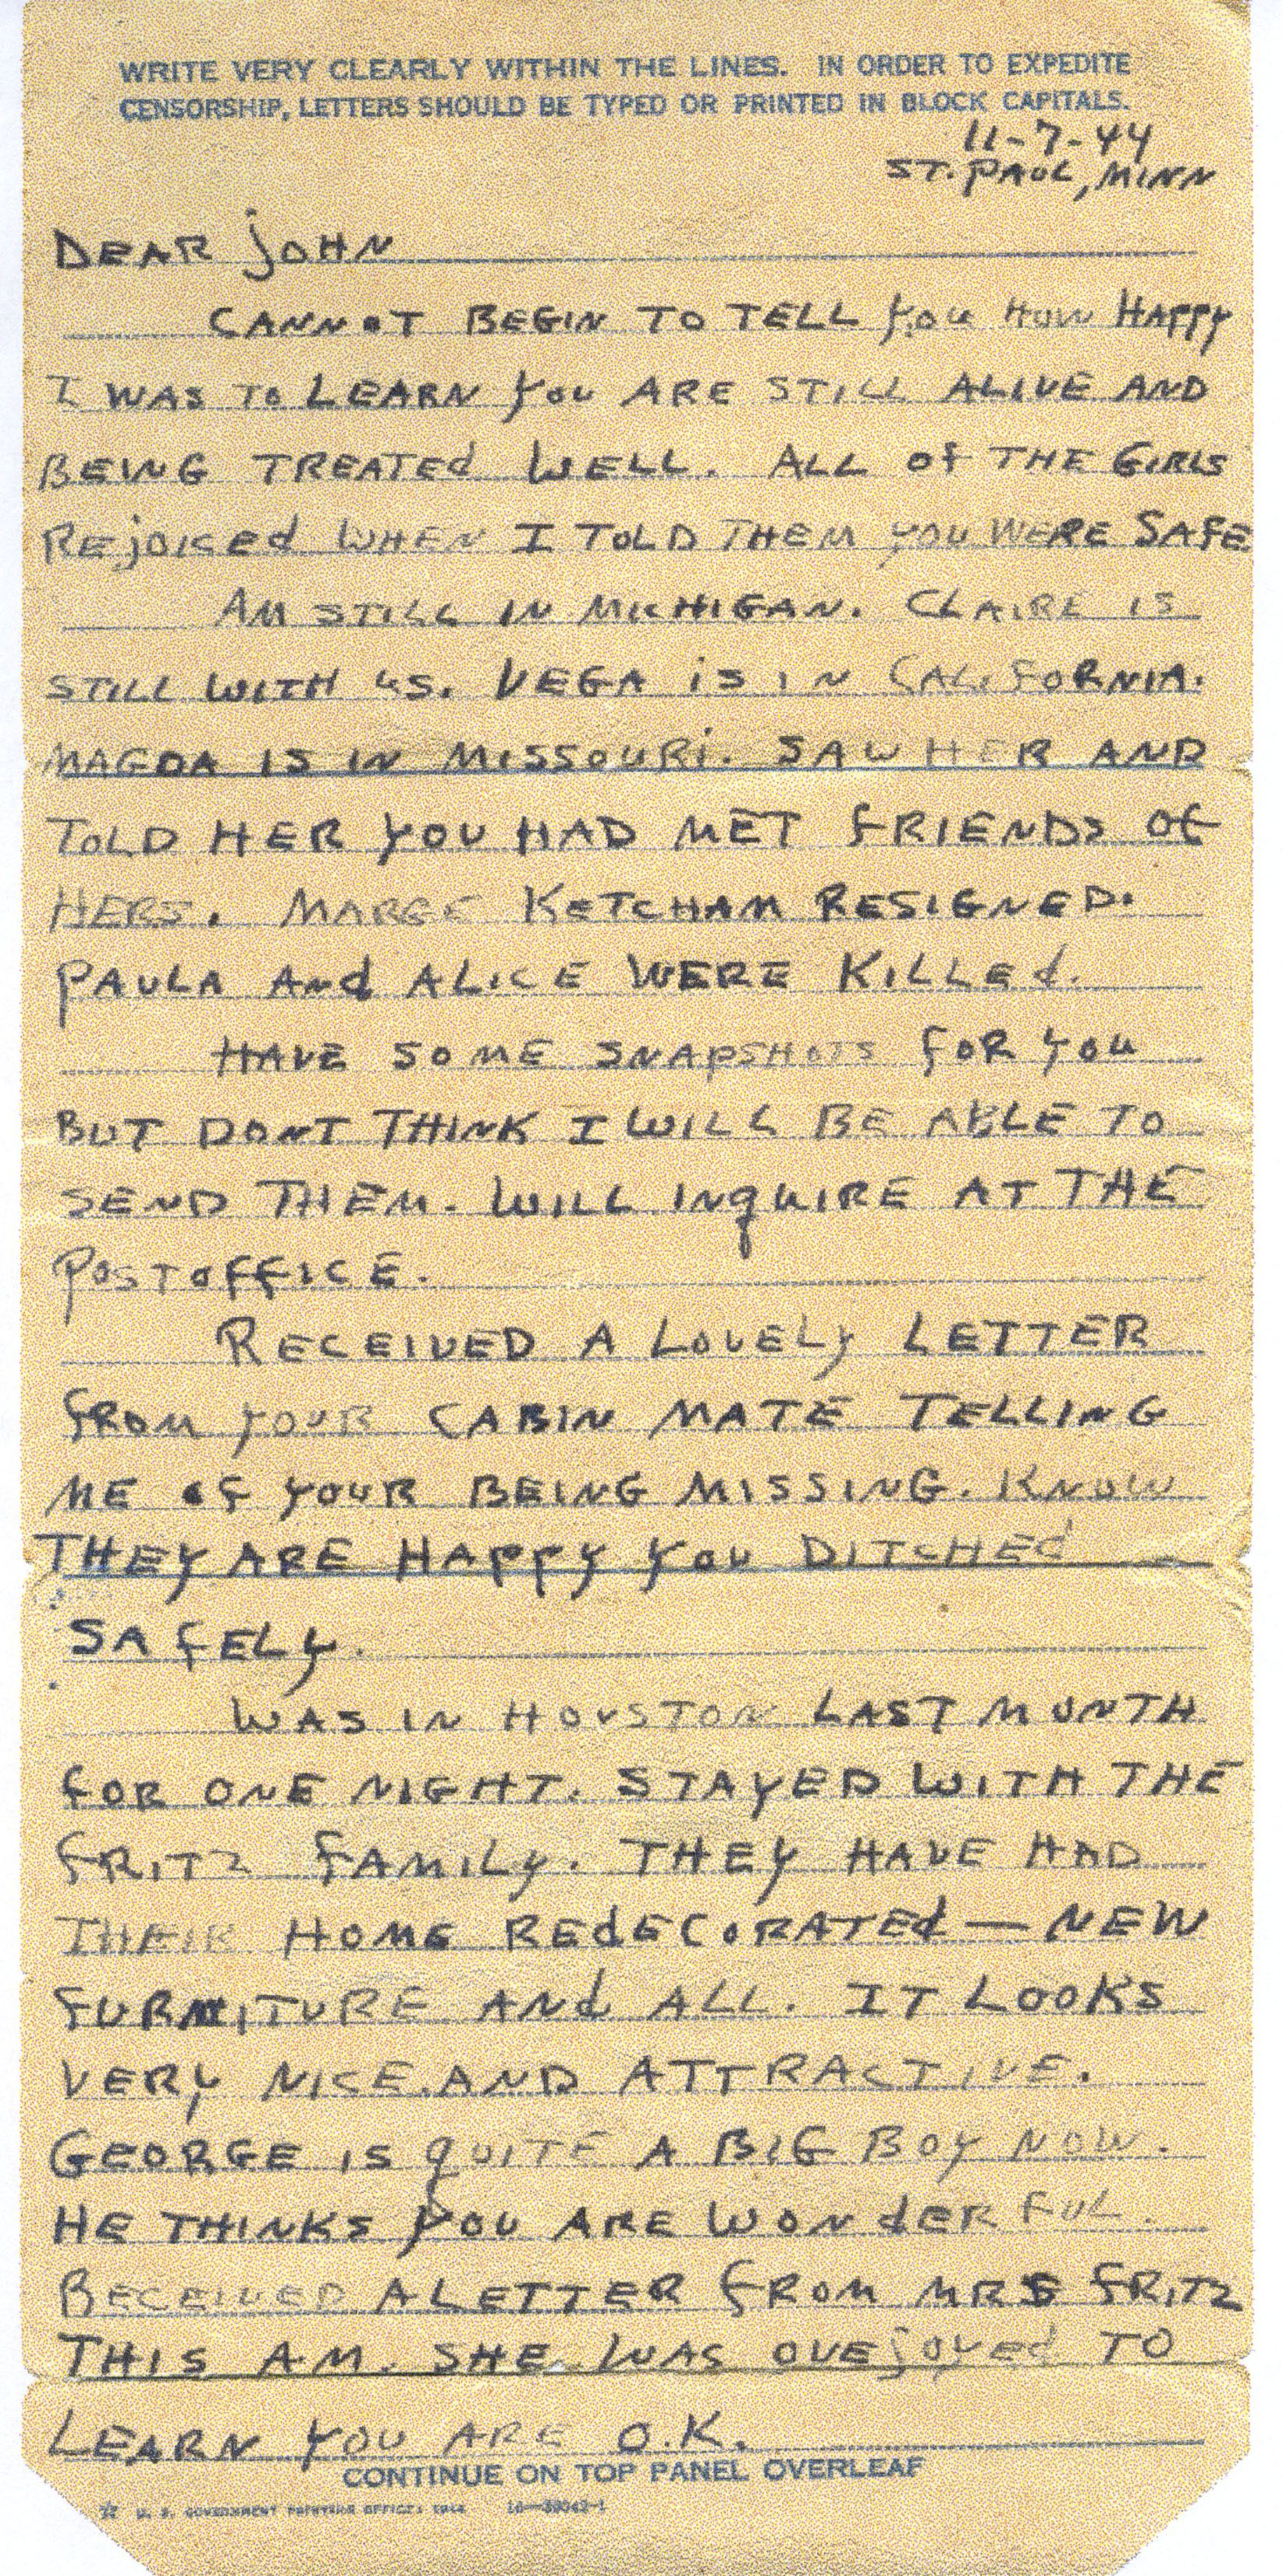 WRITE VERY CLEARLY WITHIN THE LINES. IN ORDER TO EXPEDITE
CENSORSHIP, LETTERS SHOULD BE TYPED OR PRINTED IN BLOCK CAPITALS.
11-7-44
ST. PAUL, MINN
DEAR JOHN
CANNOT BEGIN TO TELL YOU HOW HAPPY
I WAS TO LEARN YOU ARE STILL ALIVE AND
BEING TREATEd WELL. ALL Of THE GIRLS
REjOICEd WHEN I TOLD THEM YOU WERE SAFE
AM STILL IN MICHIGAN. CLAIRE IS
STILL WITH US. VEGA IS IN CALIFORNIA.
MAGDA IS IN MISSOURI. SAW HER AND
TOLD HER YOU HAD MET FRIENDS OF
HERS. MARGE KETCHAM RESIGNED.
PAULA ANd ALICE WERE KILLEd.
HAVE SOME SNAPSHOTS FOR YOU
BUT DONT THINK I WILL BE ABLE TO
SEND THEM. WILL INqUIRE AT THE
POSTOFFICE.
RECEIVED A LOVELY LETTER
FROM YOUR CABIN MATE TELLING
ME OF YOUR BEING MISSING. KNOW
THEY ARE HAPPY YOU DITCHEd
SAFELY.
WAS IN HOUSTON LAST MONTH
FOR ONE NIGHT. STAYED WITH THE
FRITZ FAMILY. THEY HAVE HAD
THEIR HOME REdECORATEd — NEW
FURNITURE ANd ALL. IT LOOKS
VERY NICE AND ATTRACTIVE.
GEORGE IS qUITE A BIG BOY NOW.
HE THINKS YOU ARE WONdERFUL.
RECEIVED A LETTER FROM MRS FRITZ
THIS AM. SHE WAS OVEJOYEd TO
LEARN YOU ARE O.K.
CONTINUE ON TOP PANEL OVERLEAF
☆ U. S. GOVERNMENT PRINTING OFFICE: 1944 16—39042-1